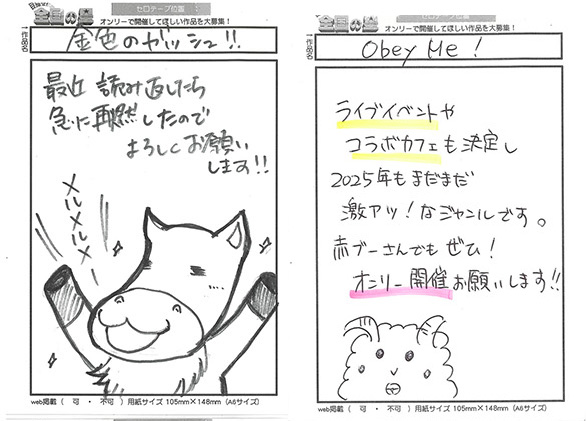 セロテープ位置
オンリーで開催してほしい作品を大募集!
作品名
金色のガッシュ!!
最近 読み返したら
急に再燃したので
よろしくお願い
します!!
メルメルメ
web掲載( 可 ・ 不可 )用紙サイズ 105mm×148mm(A6サイズ)
セロテープ位置
オンリーで開催してほしい作品を大募集!
作品名
Obey Me!
ライブイベントや
コラボカフェも決定し
2025年もまだまだ
激アツ!なジャンルです。
赤ブーさんでもぜひ!
オンリー開催お願いします!!
web掲載( 可 ・ 不可 )用紙サイズ 105mm×148mm(A6サイズ)